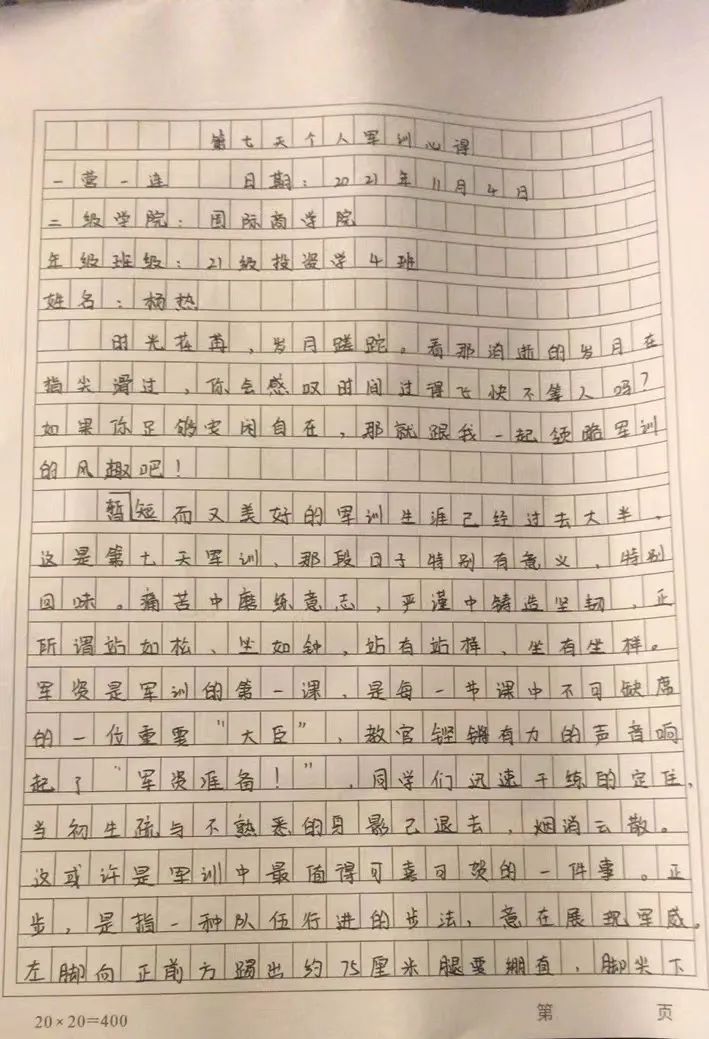 第七天个人军训心得
一营一连 日期：2021年11月4日
二级学院：国际商学院
年级班级：21级投资学4班
姓名：杨热
时光荏苒，岁月蹉跎。看那消逝的岁月在
指尖滑过，你会感叹时间过得飞快不等人吗？
如果你足够安闲自在，那就跟我一起领略军训
的风趣吧！
暂短而又美好的军训生涯已经过去大半，
这是第七天军训，那段日子特别有意义，特别
回味。痛苦中磨练意志，严谨中铸造坚韧，正
所谓站如松、坐如钟，站有站样、坐有坐样。
军资是军训的第一课，是每一节课中不可缺席
的一位重要“大臣”，教官铿锵有力的声音响
起了“军资准备！”，同学们迅速干练的定住，
当初生疏与不熟悉的身影已退去，烟消云散。
这或许是军训中最值得可喜可贺的一件事。正
步，是指一种队伍行进的步法，意在展现军威。
左脚向正前方踢出约75厘米腿要绷直，脚尖下
20×20=400
第 页